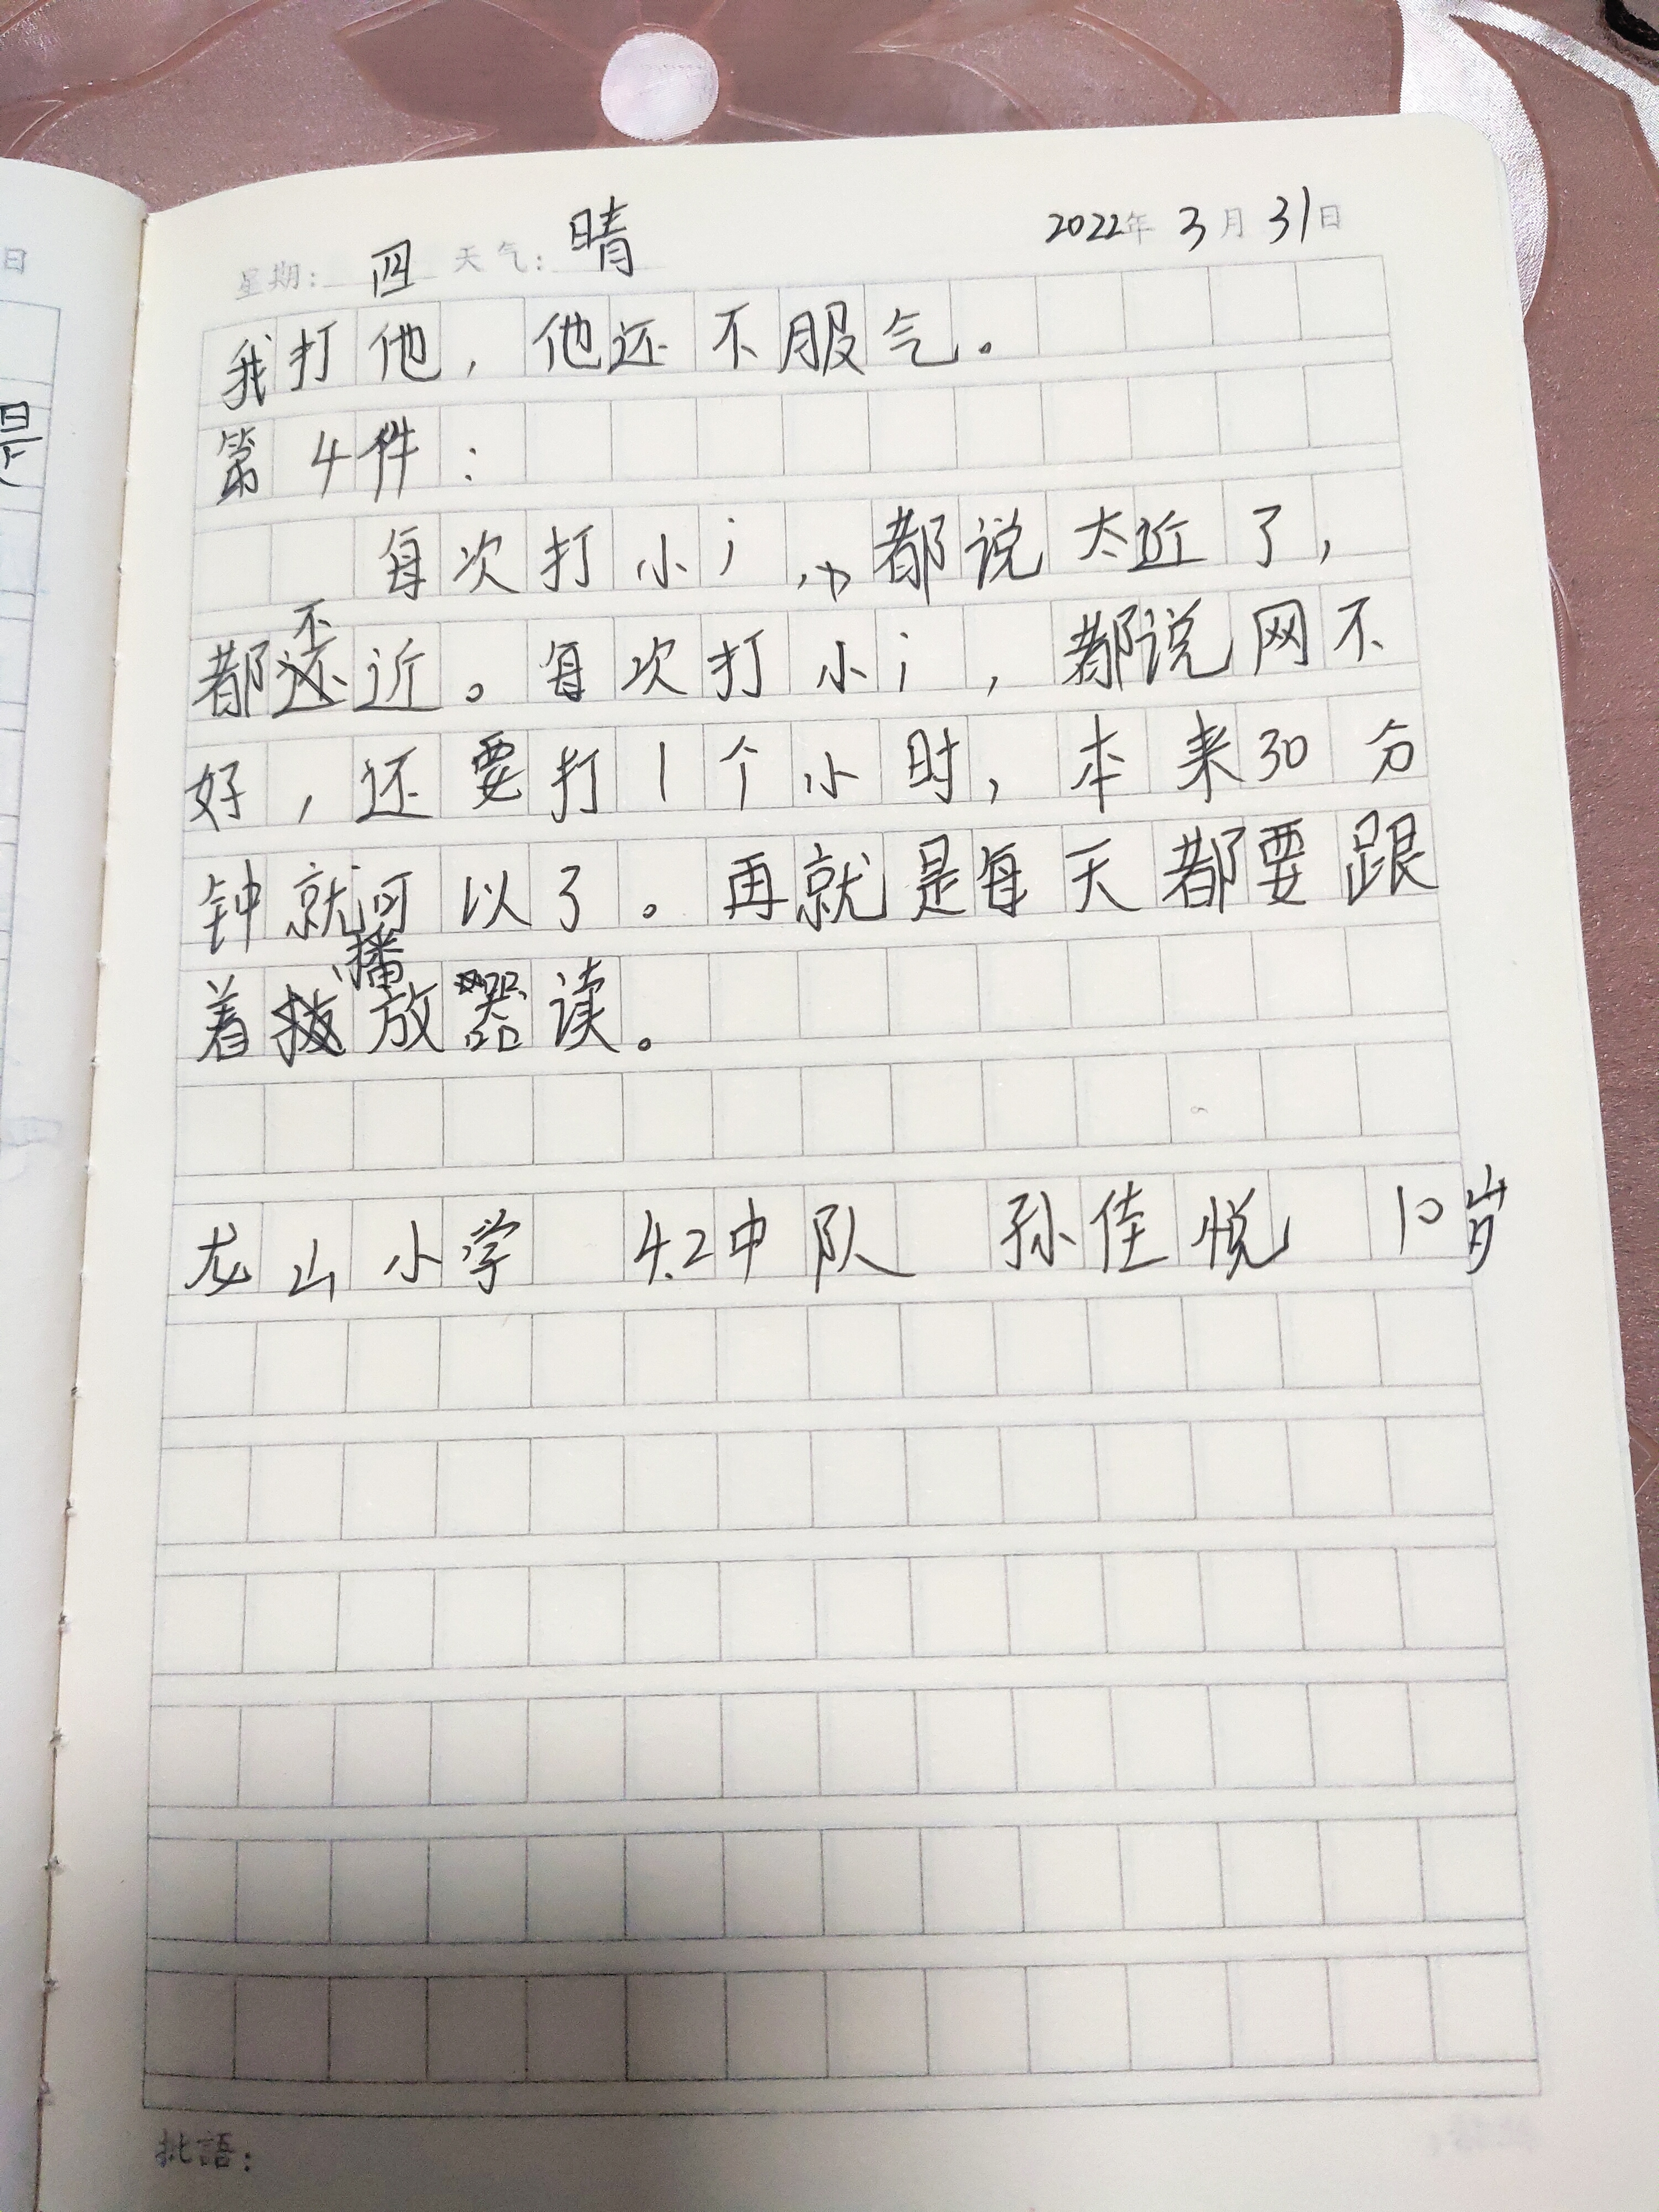 日
是
星期: 四 天气: 晴 2022年 3月 31日
我打他，他还不服气。
第4件：
每次打小i，都说太近了，
都不近。每次打小i，都说网不
好，还要打1个小时，本来30分
钟就可以了。再就是每天都要跟
着播放器读。
龙山小学 4.2中队 孙佳悦 10岁
批語：